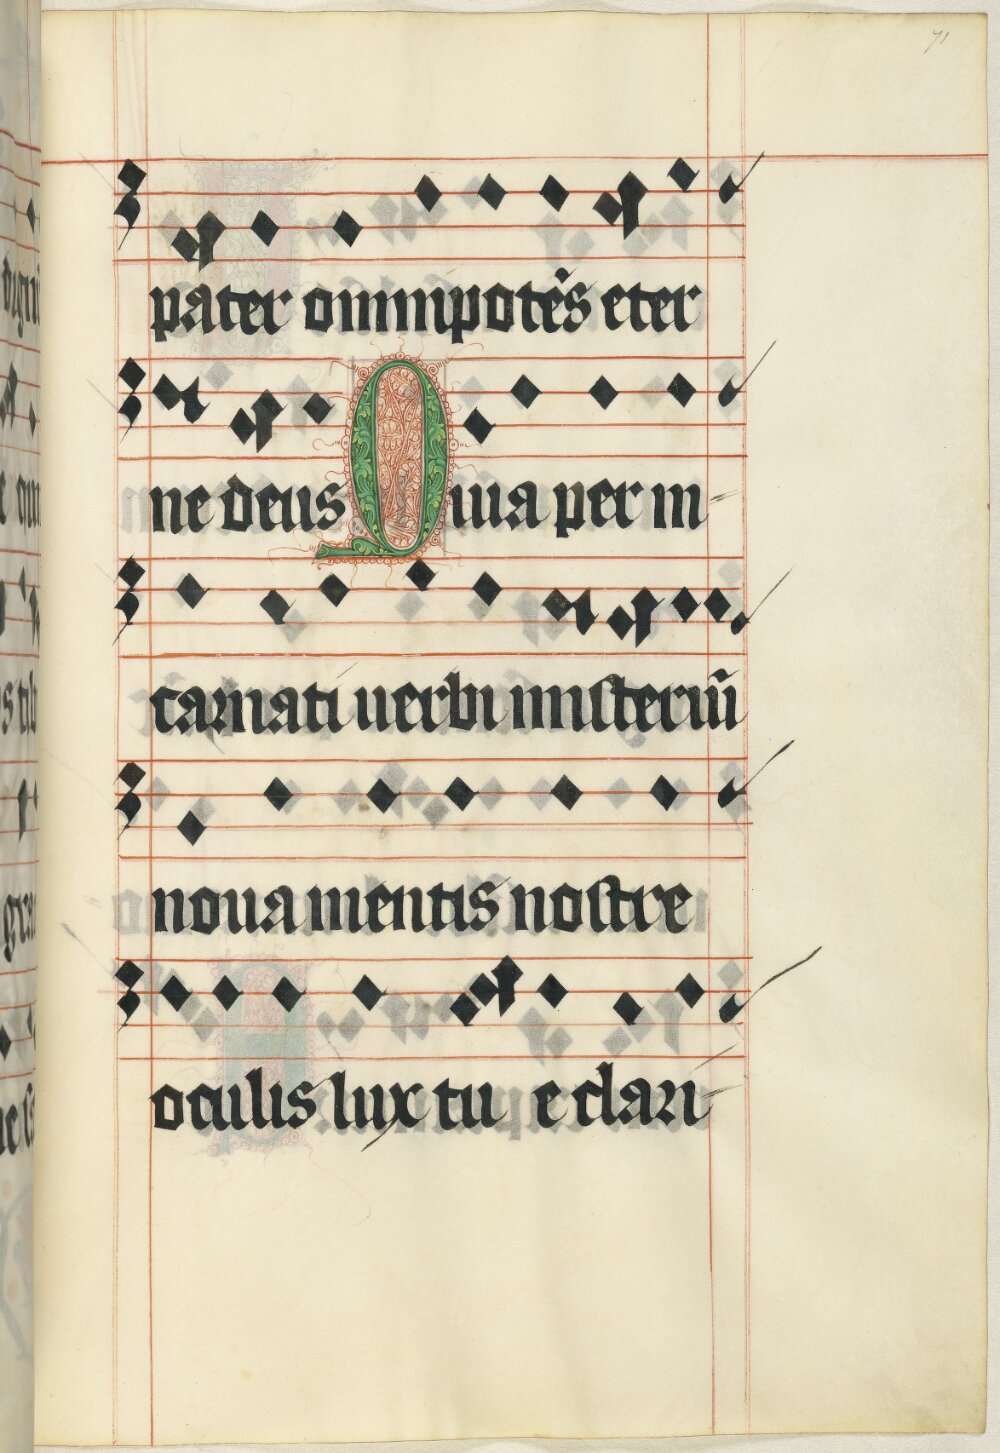 71
pater omnipotē̄s eter
ne deus Quia per in-
carnati uerbi misteriū
noua mentis nostre
oculis lux tu e clari-